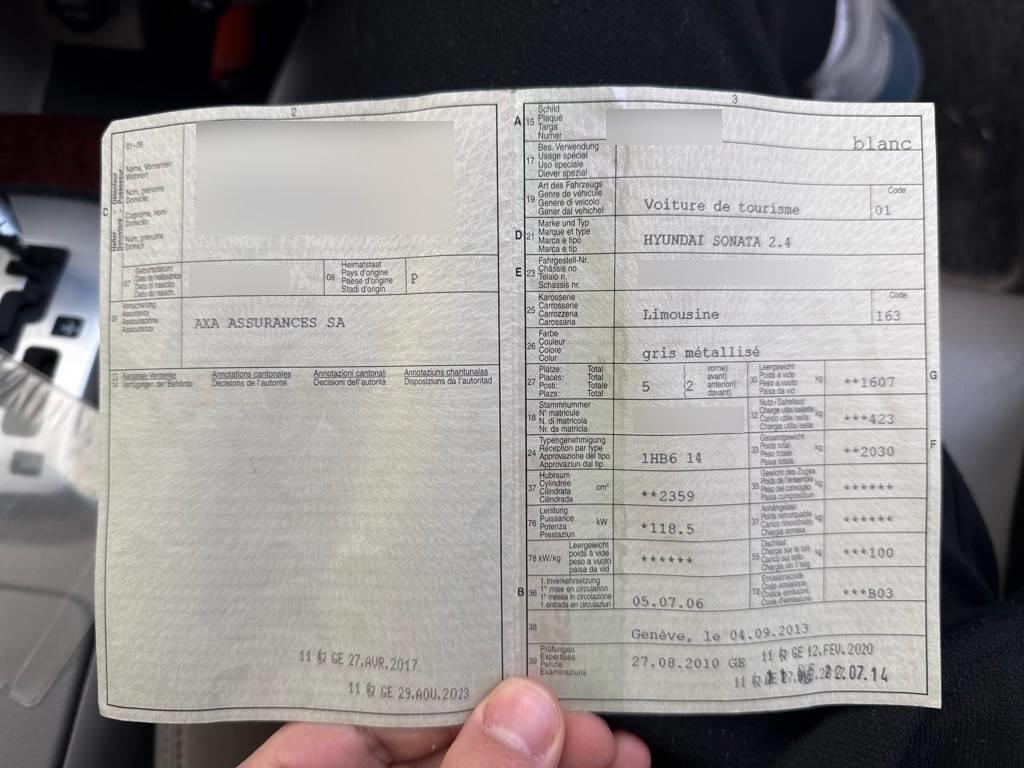 2
01-06
Name, Vornamen
Wohnort
Nom, prénoms
Domicile
Cognome, nomi
Domicilio
Num, prenums
Domicil
C
07
Geburtsdatum
Date de naissance
Data di nascita
Data da nasch.
08
Heimatstaat
Pays d'origine
Paese d'origine
Stadi d'origin
P
09
Versicherung
Assurance
Assicurazione
Assicuranza
AXA ASSURANCES SA
13 Kantonale Vermerke
14 Verfügungen der Behörde
Annotations cantonales
Décisions de l'autorité
Annotazioni cantonali
Decisioni dell'autorità
Annotaziuns chantunalas
Disposiziuns da l'autoritad
11 R GE 27.AVR.2017
11 R GE 29.AOU.2023
3
A 15
Schild
Plaque
Targa
Numer
blanc
17
Bes. Verwendung
Usage spécial
Uso speciale
Diever spezial
19
Art des Fahrzeugs
Genre de véhicule
Genere di veicolo
Gener dal vehichel
Voiture de tourisme
Code
01
D 21
Marke und Typ
Marque et type
Marca e tipo
Marca e tip
HYUNDAI SONATA 2.4
E 23
Fahrgestell-Nr.
Châssis no
Telaio n.
Schassis nr.
25
Karosserie
Carrosserie
Carrozzeria
Carossaria
Limousine
Code
163
26
Farbe
Couleur
Colore
Colur
gris métallisé
27
Plätze: Total
Places: Total
Posti: Totale
Plazs: Total
5 (2
vorne)
avant)
anteriori)
davant)
30
Leergewicht
Poids à vide
Peso a vuoto
Paisa da vid
kg
**1607
G
18
Stammnummer
N° matricule
N. di matricola
Nr. da matricla
32
Nutz-/Sattellast
Charge utile/sellette
Carico utile/sella
Chargia utila/sella
kg
***423
24
Typengenehmigung
Réception par type
Approvazione del tipo
Approvaziun dal tip
1HB6 14
33
Gesamtgewicht
Poids total
Peso totale
Paisa totala
kg
**2030
F
37
Hubraum
Cylindrée
Cilindrata
Cilindrada
cm³
**2359
35
Gewicht des Zuges
Poids de l'ensemble
Peso del convoglio
Paisa cumposiziun
kg
******
76
Leistung
Puissance
Potenza
Prestaziun
kW
*118.5
31
Anhängelast
Poids remorquable
Carico rimorchiato
Chargia annexa
kg
******
78 kW/kg
Leergewicht
poids à vide
peso a vuoto
paisa da vid
******
55
Dachlast
Charge sur le toit
Carico sul tetto
Chargia sin il tetg
kg
***100
B 36
1. Inverkehrsetzung
1re mise en circulation
1a messa in circolazione
1. entrada en circulaziun
05.07.06
72
Emissionscode
Code émissions
Codice emissioni
Code d'emissiuns
***B03
38
Genève, le 04.09.2013
39
Prüfungen
Expertises
Perizie
Examinaziuns
27.08.2010 GE
11 R GE 12.FEV.2020